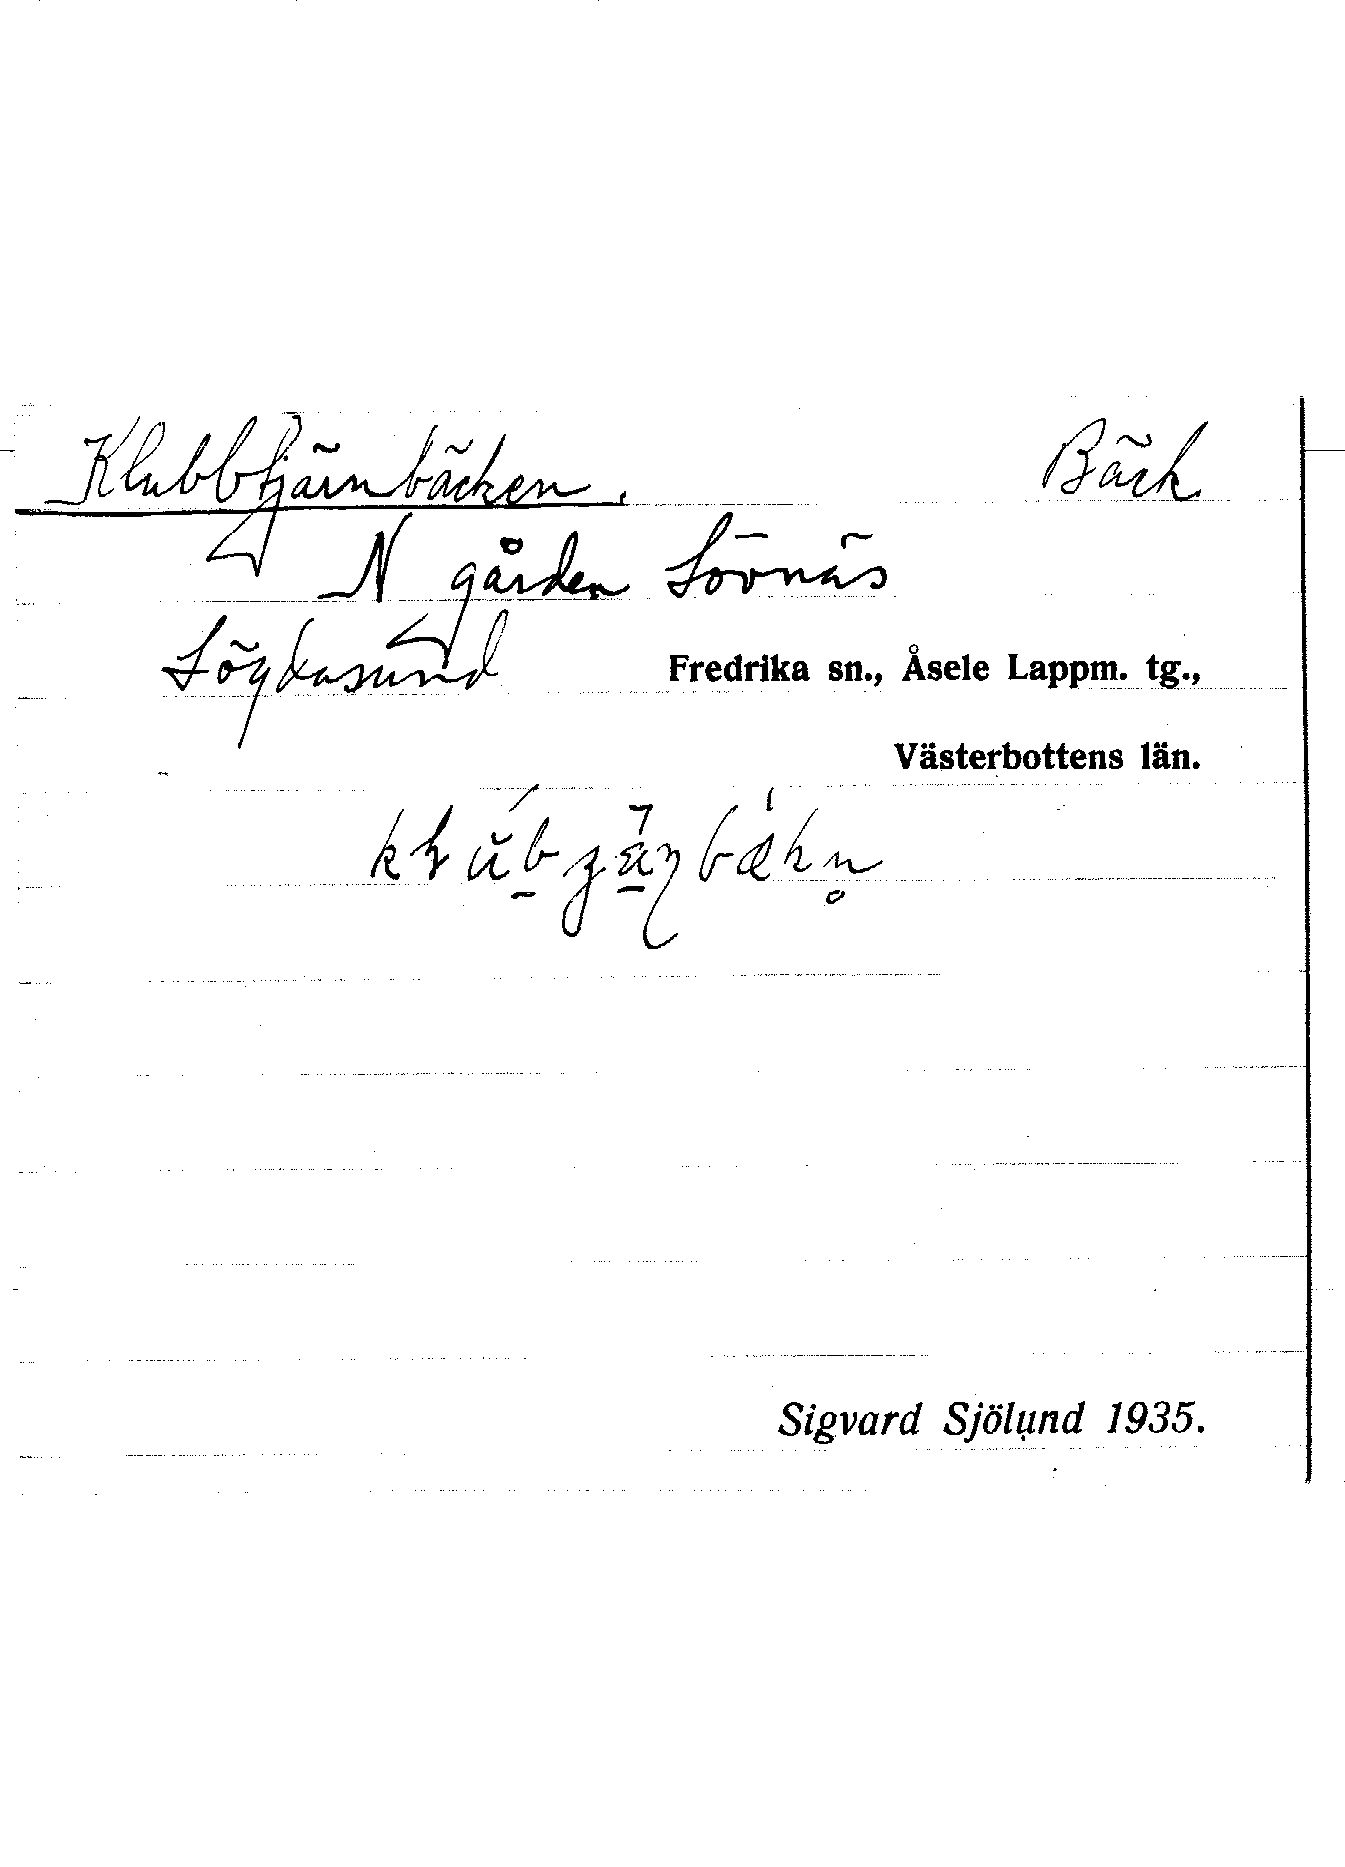 Klubbtjärnbäcken. Bäck
N gården Lövnäs
Lögdasund Fredrika sn., Åsele Lappm. tg.,
Västerbottens län.
Sigvard Sjölund 1935.